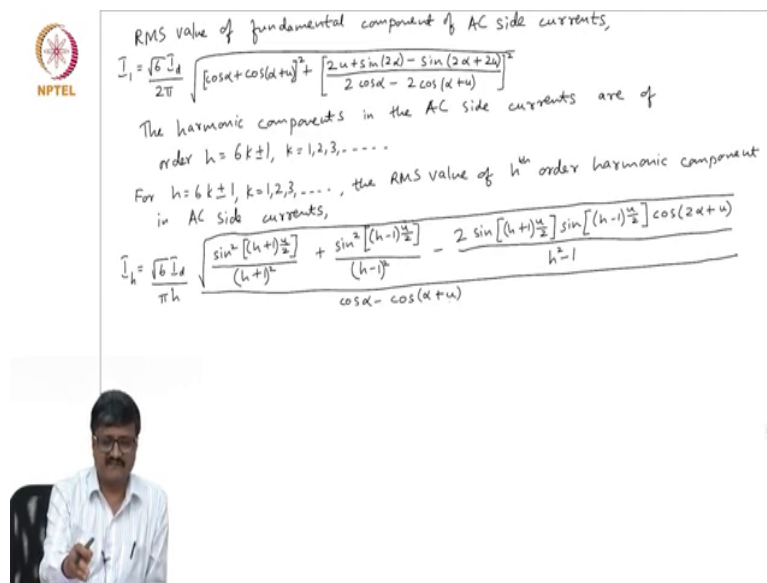 RMS value of fundamental component of AC side currents,
I₁ = √6 I_d / 2π √( [cosα + cos(α+u)]² + [ (2u + sin(2α) – sin(2α+2u)) / (2 cosα – 2 cos(α+u)) ]² )
NPTEL
The harmonic components in the AC side currents are of
order h = 6k±1, k = 1,2,3,.....
For h = 6k±1, k = 1,2,3,...., the RMS value of hth order harmonic component
in AC side currents,
I_h = √6 I_d / πh √( sin²[(h+1)u/2] / (h+1)² + sin²[(h-1)u/2] / (h-1)² – 2 sin[(h+1)u/2] sin[(h-1)u/2] cos(2α+u) / h²-1 ) / cosα – cos(α+u)